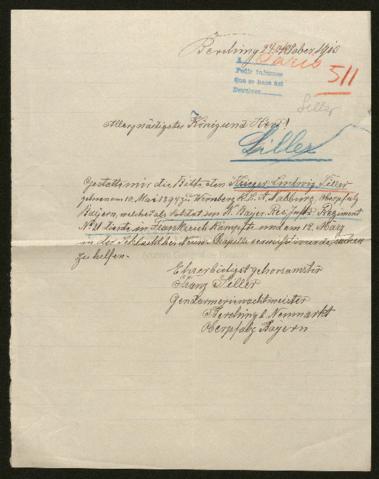 Berching 24. Oktober 1915
Paris
Pedir informes
Que se hace así
511
Siller
Allergnädigster König und Herr!
Siller
Gestatte mir die Bitte, den Ludwig Siller
geboren am 10. Mai 1894 zu Wernberg Oberpfalz
Bayern, welcher als Soldat vom Bayer. Res. Inftr. Regiment
No 21 in Frankreich kämpfte und am 12. März
in der Schlacht bei Neuve Chapelle vermißt wurde, suchen
zu helfen.
Ehrerbietigst gehorsamster
Franz Siller
Gendarmeriewachtmeister
Berching b. Neumarkt
Oberpfalz Bayern